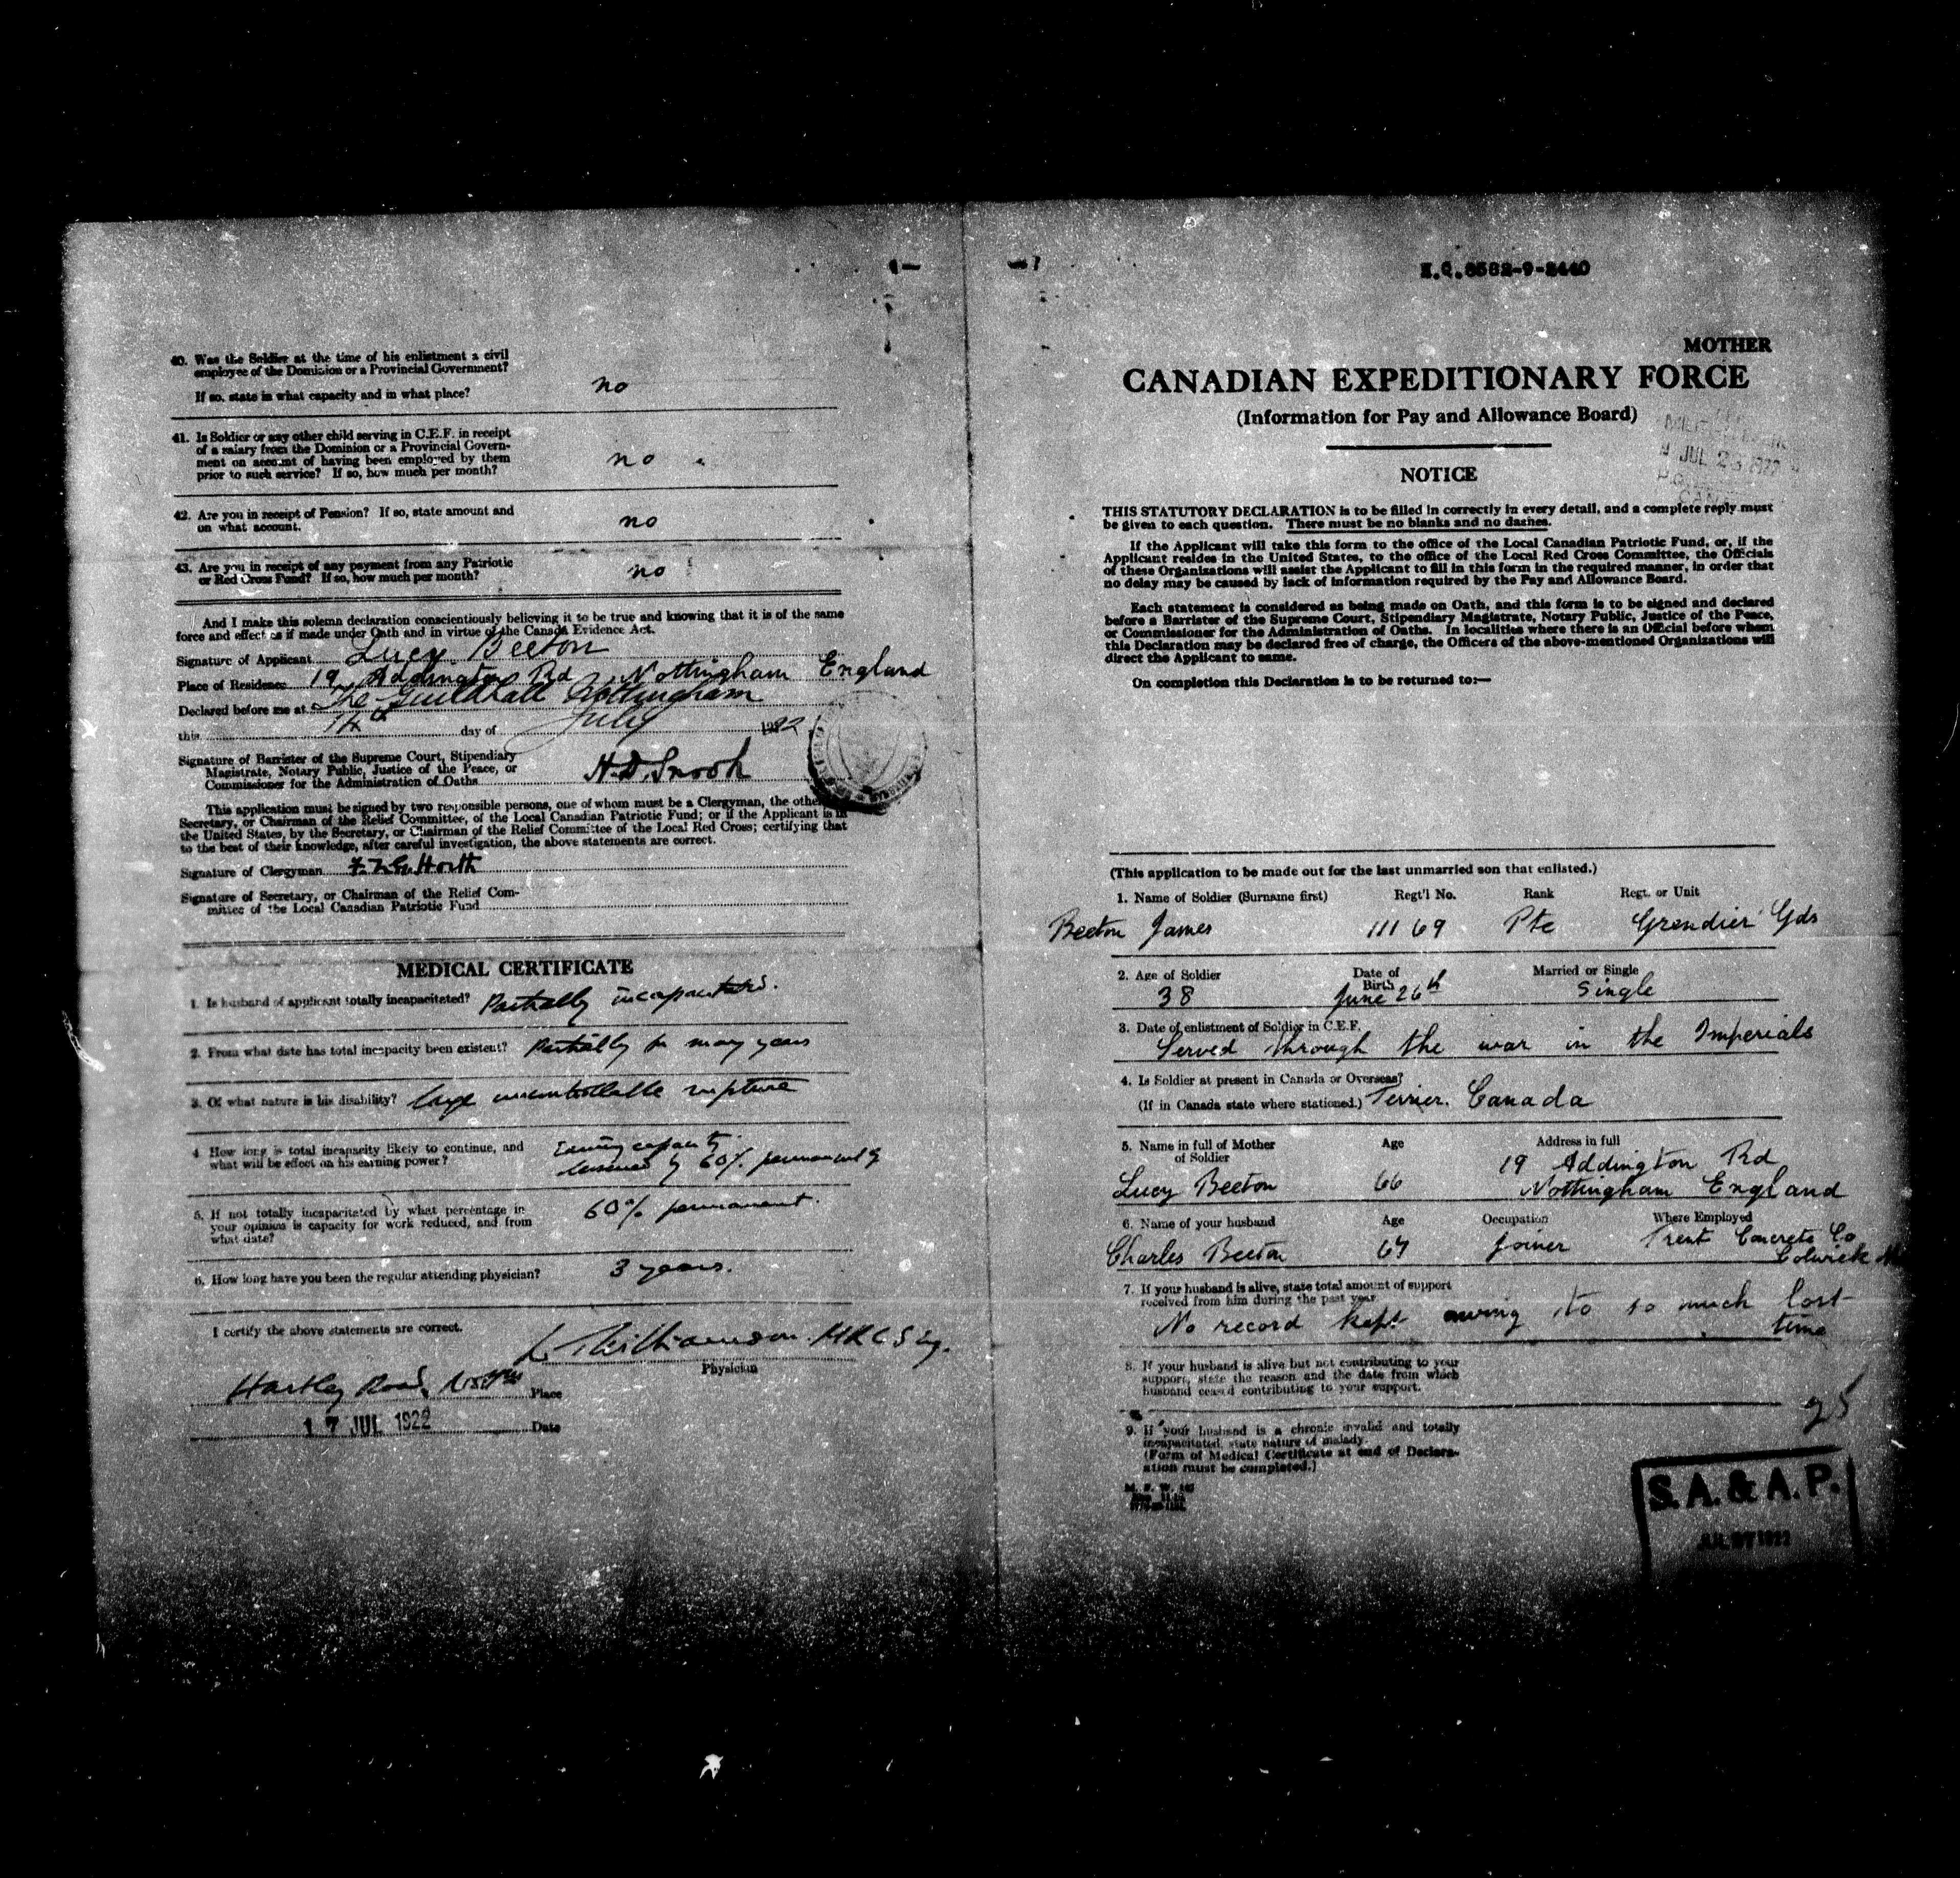 40. Was the Soldier at the time of his enlistment a civil
employee of the Dominion or a Provincial Government?
If so, state in what capacity and in what place?
no
41. Is Soldier or any other child serving in C.E.F. in receipt
of a salary from the Dominion or a Provincial Govern-
ment on account of having been employed by them
prior to such service? If so, how much per month?
no
42. Are you in receipt of Pension? If so, state amount and
on what account.
no
43. Are you in receipt of any payment from any Patriotic
or Red Cross Fund? If so, how much per month?
no
And I make this solemn declaration conscientiously believing it to be true and knowing that it is of the same
force and effect as if made under Oath and in virtue of the Canada Evidence Act.
Signature of Applicant Lucy Beeton
Place of Residence 19 Addington Rd Nottingham England
Declared before me at The Guildhall Nottingham
this day of July 1922
Signature of Barrister of the Supreme Court, Stipendiary
Magistrate, Notary Public, Justice of the Peace, or
Commissioner for the Administration of Oaths H.D. Snook
This application must be signed by two responsible persons, one of whom must be a Clergyman, the other
Secretary, or Chairman of the Relief Committee, of the Local Canadian Patriotic Fund; or if the Applicant is in
the United States, by the Secretary, or Chairman of the Relief Committee of the Local Red Cross; certifying that
to the best of their knowledge, after careful investigation, the above statements are correct.
Signature of Clergyman
Signature of Secretary, or Chairman of the Relief Com-
mittee of the Local Canadian Patriotic Fund
MEDICAL CERTIFICATE
1. Is husband of applicant totally incapacitated? Partially incapacitated.
2. From what date has total incapacity been existent? Partially for many years
3. Of what nature is his disability? large uncontrollable rupture
4. How long is total incapacity likely to continue, and
what will be effect on his earning power?
Earning capacity
lessened by 60% permanently
5. If not totally incapacitated by what percentage in
your opinion is capacity for work reduced, and from
what date?
60% permanent.
6. How long have you been the regular attending physician? 3 years.
I certify the above statements are correct.
Williamson MRCS Eng.
Physician
Hartley Road, Nottm Place
17 JUL 1922 Date
H.Q.6582-9-2440
MOTHER
CANADIAN EXPEDITIONARY FORCE
(Information for Pay and Allowance Board)
JUL 23 1922
NOTICE
THIS STATUTORY DECLARATION is to be filled in correctly in every detail, and a complete reply must
be given to each question. There must be no blanks and no dashes.
If the Applicant will take this form to the office of the Local Canadian Patriotic Fund, or, if the
Applicant resides in the United States, to the office of the Local Red Cross Committee, the Officials
of these Organizations will assist the Applicant to fill in this form in the required manner, in order that
no delay may be caused by lack of information required by the Pay and Allowance Board.
Each statement is considered as being made on Oath, and this form is to be signed and declared
before a Barrister of the Supreme Court, Stipendiary Magistrate, Notary Public, Justice of the Peace,
or Commissioner for the Administration of Oaths. In localities where there is an Official before whom
this Declaration may be declared free of charge, the Officers of the above-mentioned Organizations will
direct the Applicant to same.
On completion this Declaration is to be returned to:—
(This application to be made out for the last unmarried son that enlisted.)
1. Name of Soldier (Surname first) Regt'l No. Rank Regt. or Unit
Beeton James 11169 Pte Grendier Gds
2. Age of Soldier Date of Birth Married or Single
38 June 26th Single
3. Date of enlistment of Soldier in C.E.F.
Served through the war in the Imperials
4. Is Soldier at present in Canada or Overseas?
(If in Canada state where stationed.) Canada
5. Name in full of Mother of Soldier Age Address in full
19 Addington Rd
Lucy Beeton 66 Nottingham England
6. Name of your husband Age Occupation Where Employed
Charles Beeton 67 Joiner Trent Concrete Co
Colwick
7. If your husband is alive, state total amount of support
received from him during the past year.
No record kept owing to so much lost
time
8. If your husband is alive but not contributing to your
support, state the reason and the date from which
husband ceased contributing to your support.
25
9. If your husband is a chronic invalid and totally
incapacitated, state nature of malady.
(Form of Medical Certificate at end of Declara-
ation must be completed.)
S.A. & A.P.
JUL 27 1922